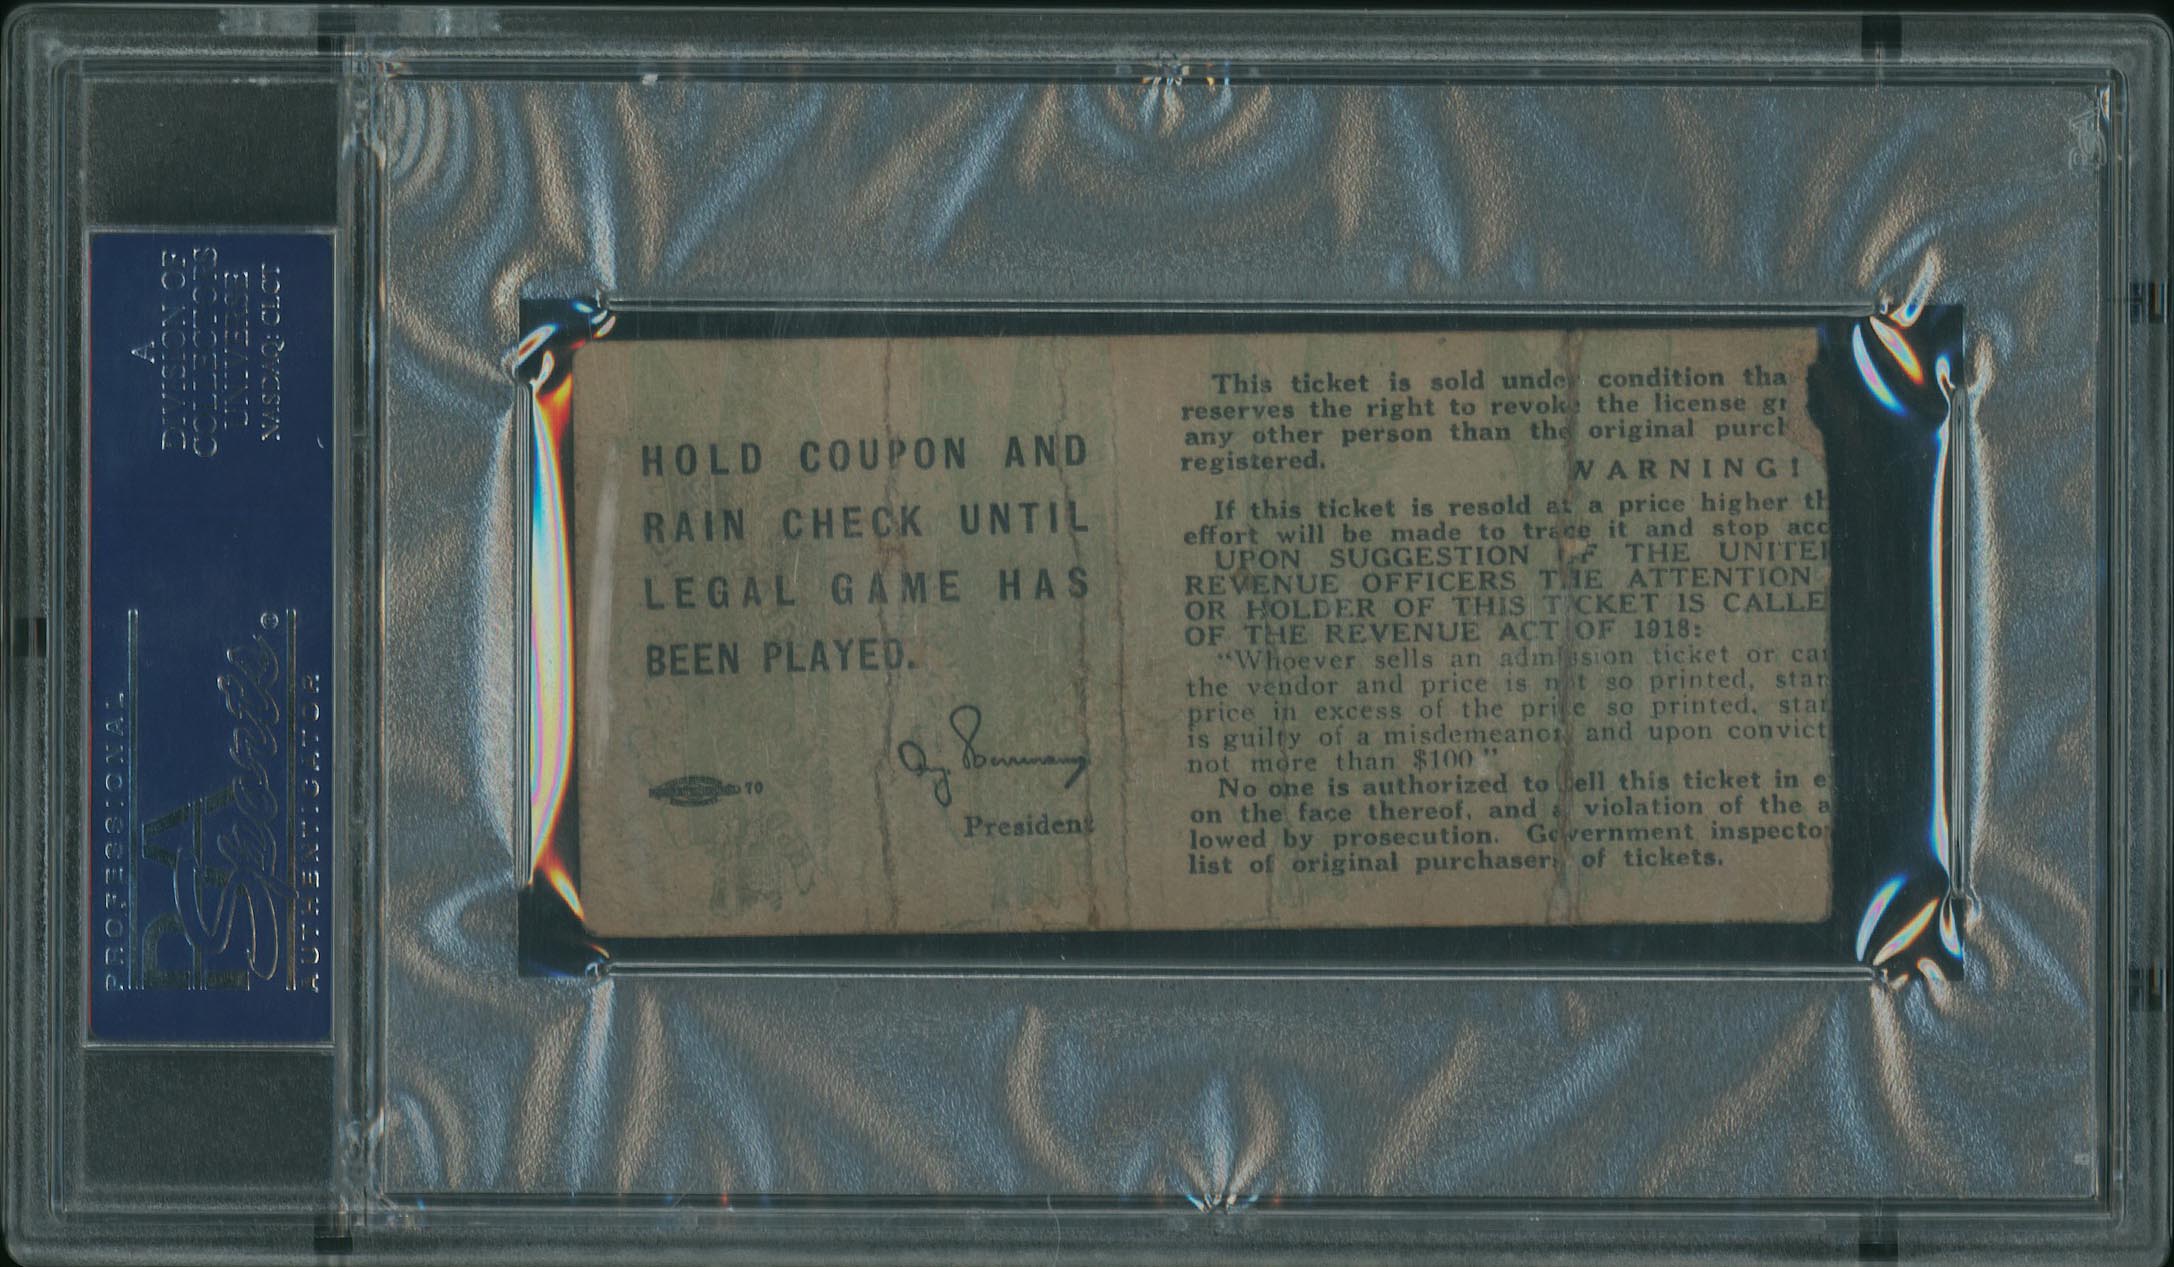 A
DIVISION OF
COLLECTORS
UNIVERSE
NASDAQ: CLCT
PROFESSIONAL
PSA
Sports®
AUTHENTICATOR
HOLD COUPON AND
RAIN CHECK UNTIL
LEGAL GAME HAS
BEEN PLAYED.
President
70
This ticket is sold under condition tha
reserves the right to revoke the license gr
any other person than the original purch
registered.
WARNING!
If this ticket is resold at a price higher th
effort will be made to trace it and stop acc
UPON SUGGESTION OF THE UNITE
REVENUE OFFICERS THE ATTENTION
OR HOLDER OF THIS TICKET IS CALLE
OF THE REVENUE ACT OF 1918:
"Whoever sells an admission ticket or car
the vendor and price is not so printed, stam
price in excess of the price so printed, stam
is guilty of a misdemeanor and upon convict
not more than $100"
No one is authorized to sell this ticket in e
on the face thereof, and a violation of the a
lowed by prosecution. Government inspector
list of original purchasers of tickets.